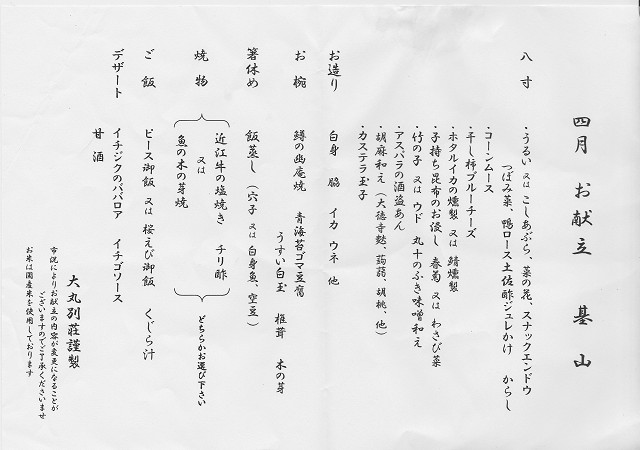 四月 お献立 基山
八寸
・うるい 又は こしあぶら、菜の花、スナックエンドウ
つぼみ菜、鴨ロース土佐酢ジュレかけ からし
・コーンムース
・干し柿ブルーチーズ
・ホタルイカの燻製 又は 鯖燻製
・子持ち昆布のお浸し 春菊 又は わさび菜
・竹の子 又は ウド 丸十のふき味噌和え
・アスパラの酒盗あん
・胡麻和え（大徳寺麩、蒟蒻、胡桃、他）
・カステラ玉子
お造り 白身 脇 イカ ウネ 他
お椀 鱒の幽庵焼 青海苔ゴマ豆腐
うすい白玉 椎茸 木の芽
箸休め 飯蒸し（穴子 又は 白身魚、空豆）
焼物
近江牛の塩焼き チリ酢
又は
魚の木の芽焼
どちらかお選び下さい
ご飯 ピース御飯 又は 桜えび御飯 くじら汁
デザート イチジクのババロア イチゴソース
甘酒
大丸別荘謹製
市況によりお献立の内容が変更になることが
ございますのでご了承くださいませ
お米は国産米を使用しております